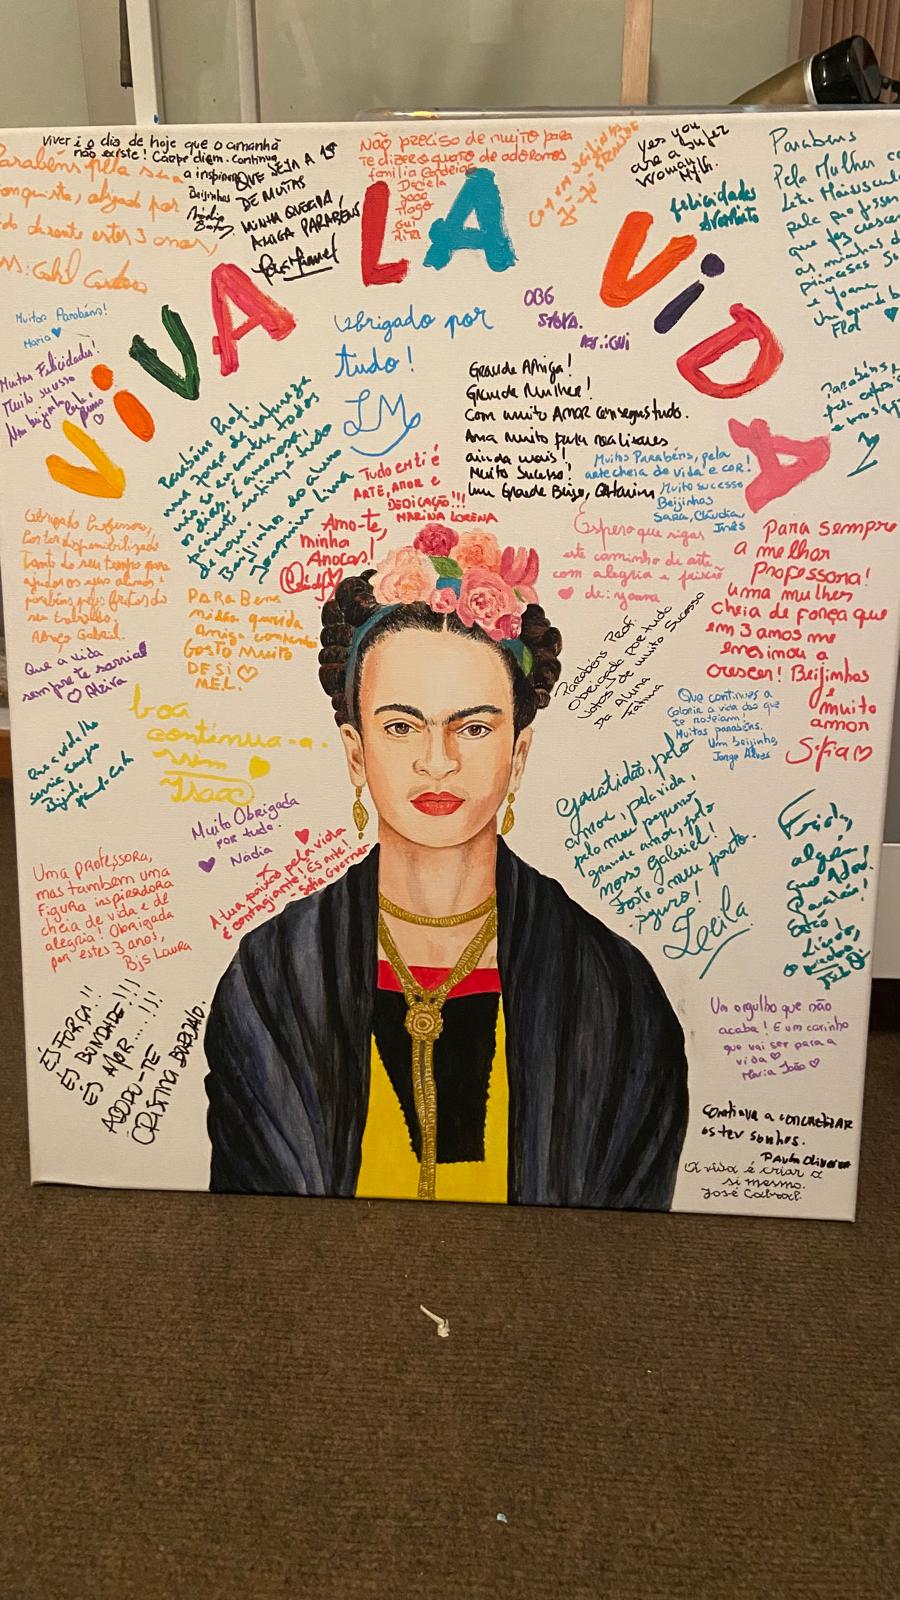 VIVA LA VIDA
Viver é o dia de hoje que o amanhã
não existe! Carpe diem. Continua
a inspirar
Beijinhos
Parabéns pela sua
conquista, obrigado por
tudo durante estes 3 anos,
QUE SEJA A 1ª
DE MUITAS
MINHA QUERIDA
AMIGA PARABÉNS
Não preciso de muito para
Te dizer o quato de adoramos
família Cardeira
Daniela
João
Tiago
Gui
Rita
yes you
are a super
Woman
felicidades
Parabens
Pela Mulher
Letra Maiuscula
pela professora
que fez crescer
as minhas d
princesas So
e Yoana
Um grande b
Flol
Muitos Parabéns!
Maria
Muitas Felicidades!
Muito sucesso
Um beijinho
Obrigado por
tudo!
LM
OBG
STORA.
Grande Amiga!
Grande Mulher!
Com muito AMOR consegues tudo.
Ama muito para realizares
ainda mais!
Muito Sucesso!
Um Grande Beijo, Catarina
Parabéns Prof.
uma força da natureza
contra todos
os dias. É amorosa,
paciente,
de bom.
Beijinhos do aluno
Joaquim Lima
Muitos Parabéns, pela
arte cheia de vida e cor!
Muito sucesso
Beijinhos
Sara, Cláudia
Inês
Tudo em ti é
ARTE, AMOR e
DEDICAÇÃO!!!
MARINA LORENA
Amo-te,
minha
Anocas!
Obrigado Professora,
por ter disponibilizado
tanto do seu tempo para
ajudar os seus alunos e
parabéns pelos frutos do
seu trabalho.
Abraço Gabriel.
PARA Bens
minha querida
Amiga
Gosto muito
DE SI
MEL.
Espero que sigas
este caminho de arte
com alegria e paixão
de: yoana
Para sempre
a melhor
professora!
Uma mulher
cheia de força que
em 3 anos me
ensinou a
crescer! Beijinhos
e
muito
amor
Sofia
Parabéns Prof.
Obrigada por tudo
Votos de muito Sucesso
Da Aluna
Fátima
Que a vida
sempre te sorria!
Que continues a
Colorir a vida dos que
te rodeiam!
Muitos parabéns.
Um beijinho,
Jorge Alves
boa
continua-a.
rim
Isaac
Que a vida lhe
sorria sempre
Muito Obrigada
por tudo.
Nádia
A tua paixão pela vida
é contagiante! És arte!
- Sofia Guerner
Gratidão, pelo
amor, pela vida,
pelo meu pequeno
grande amor, pelo
nosso Gabriel!
Foste o meu porto
seguro!
Leila
Uma professora,
mas também uma
figura inspiradora
cheia de vida e de
alegria! Obrigada
por estes 3 anos,
Bjs Laura
ÉS FORÇA!!
ÉS BONDADE!!!
ÉS AMOR....!!!
ADORO-TE
Um orgulho que não
acaba! E um carinho
que vai ser para a
vida
Maria João
Continua a concretizar
os teus sonhos.
Paula Oliveira
A vida é criar a
si mesmo.
José Cabral.